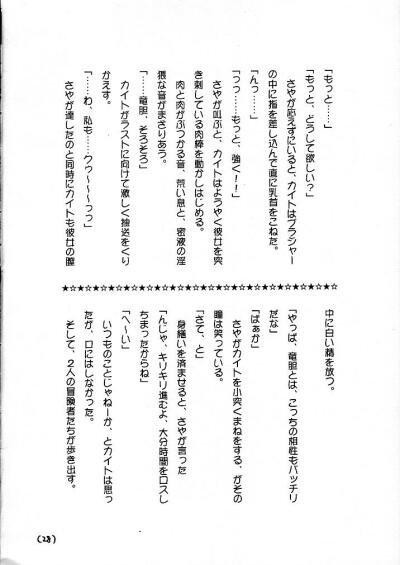 「もっと……」
「もっと、どうして欲しい？」
さやが応えずにいると、カイトはブラシャー
の中に指を差し込んで直に乳首をこねた。
「んっ……」
「っっ……もっと、強く！！」
さやが叫ぶと、カイトはようやく彼女を突
き刺している肉棒を動かしはじめる。
肉と肉がぶつかる音、荒い息と、密液の淫
猥な音がまざりあう。
「……竜胆、そろそろ」
カイトがラストに向けて激しく抽送をくり
かえす。
「……わ、私も……クゥ～～～っっ」
さやが達したのと同時にカイトも彼女の膣
★☆★☆★☆★☆★☆★☆★☆★☆★☆★☆★☆★☆★☆★☆★☆★☆★☆
中に白い精を放つ。
「やっぱ、竜胆とは、こっちの相性もバッチリ
だな」
「ばぁか」
さやがカイトを小突くまねをする、がその
瞳は笑っている。
「さて、と」
身繕いを済ませると、さやが言った
「んじゃ、キリキリ進むよ、大分時間をロスし
ちまったからね」
「へ～い」
いつものことじゃねーか、とカイトは思っ
たが、口にはしなかった。
そして、２人の冒険者たちが歩き出す。
(28)